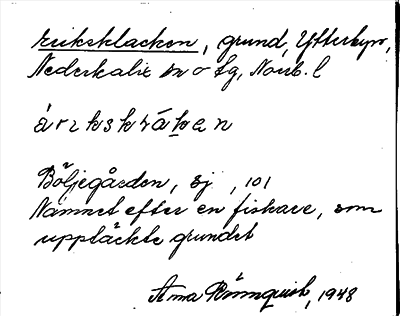 Eriksklacken, grund, Ytterbyn,
Nederkalix sn o lg, Norrb. l
Böljegården, sj , 101
Namnet efter en fiskare, som
upptäckte grundet
Rönnquist, 1948